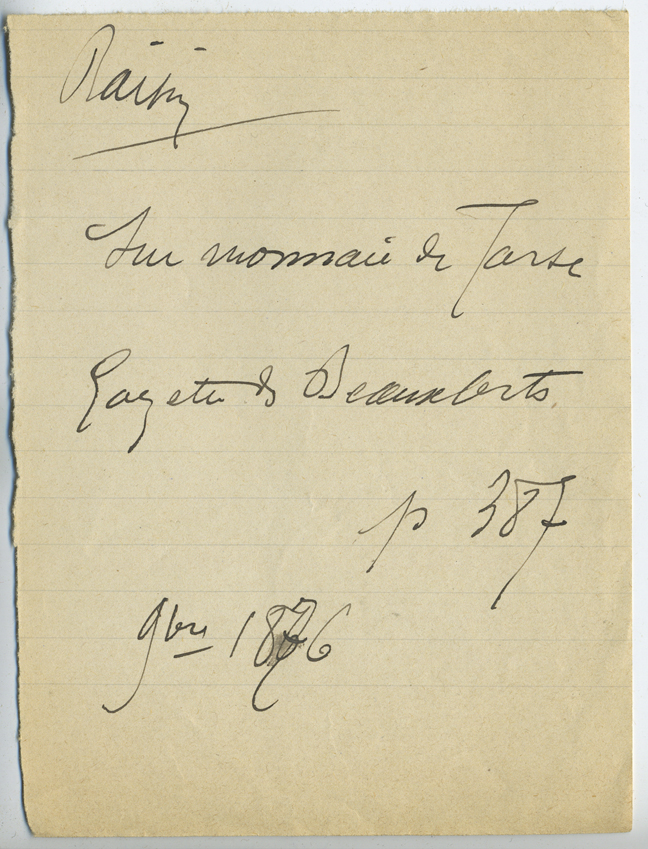 Raisin
Sur monnaie de Tarse
Gazette des Beaux Arts
p 387
9bre 1876